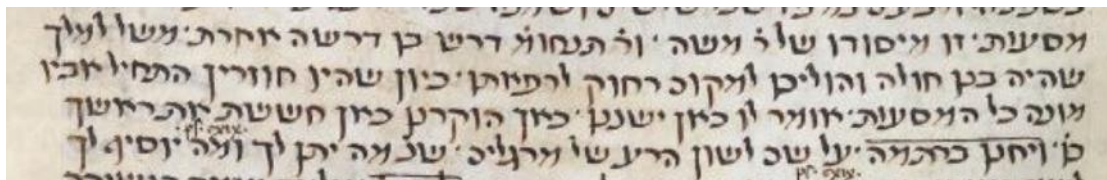 מסעות· זו מיסודו של ר' משה · ור' תנחומ' דרש בו דרשה אחרת· משל למלך
שהיה בנו חולה והוליכו למקום רחוק לרפאותו· כיון שהיו חוזרין התחיל אביו
מונה כל המסעות· אומר לו כאן ישננו· כאן הוקרנו כאן חששת את ראשך
כו' ויחנו ברתמה על שם לשון הרע של מרגלים· שנ' מה יתן לך ומה יוסיף לך